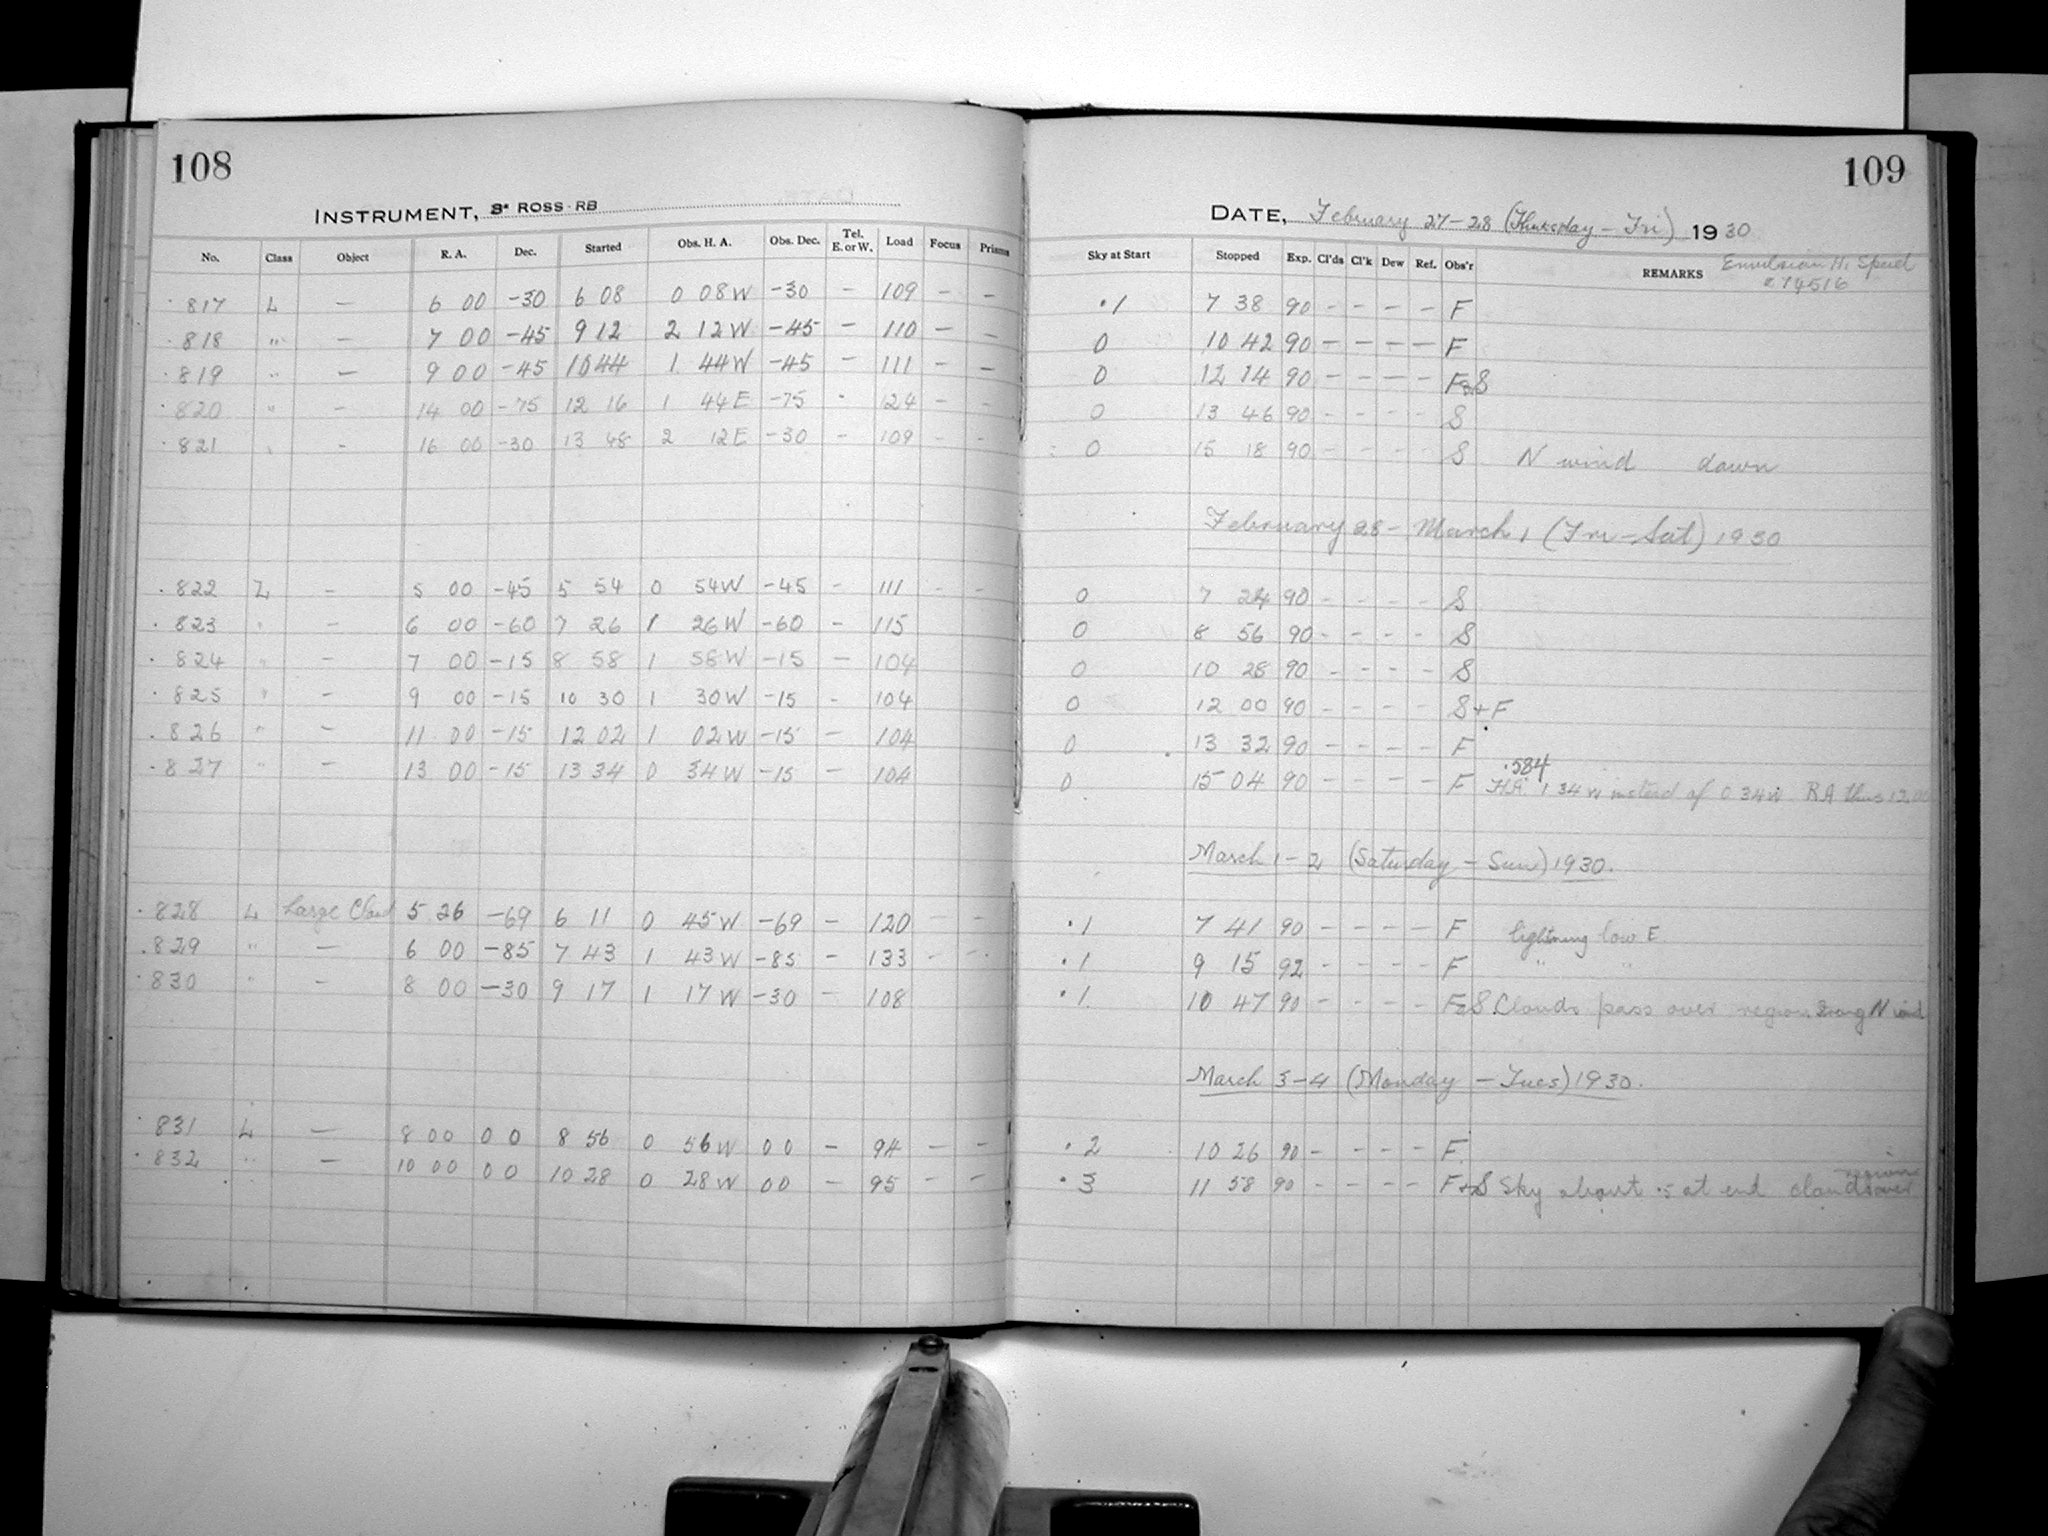 108
INSTRUMENT, 3" ROSS-RB
No. Class Object R. A. Dec. Started Obs. H. A. Obs. Dec. Tel. E. or W. Load Focus Prisms
817 L — 6 00 -30 6 08 0 08W -30 — 109 — —
818 " — 7 00 -45 9 12 2 12W -45 — 110 — —
819 " — 9 00 -45 10 44 1 44W -45 — 111 — —
820 " — 14 00 -75 12 16 1 44E -75 - 124 — —
821 " — 16 00 -30 13 48 2 12E -30 — 109 — —
822 L — 5 00 -45 5 54 0 54W -45 — 111 — —
823 " — 6 00 -60 7 26 1 26W -60 — 115
824 " — 7 00 -15 8 58 1 58W -15 — 104
825 " — 9 00 -15 10 30 1 30W -15 — 104
826 " — 11 00 -15 12 02 1 02W -15 — 104
827 " — 13 00 -15 13 34 0 34W -15 — 104
828 L Large Cloud 5 26 -69 6 11 0 45W -69 — 120 — —
829 " — 6 00 -85 7 43 1 43W -85 — 133 — —
830 " — 8 00 -30 9 17 1 17W -30 — 108
831 L — 8 00 0 0 8 56 0 56W 0 0 — 94 — —
832 " — 10 00 0 0 10 28 0 28W 0 0 — 95 — —
109
DATE, February 27-28 (Thursday - Fri) 1930
Sky at Start Stopped Exp. Cl'ds Cl'k Dew Ref. Obs'r REMARKS Emulsion Hi Speed
74516
.1 7 38 90 — — — — F
0 10 42 90 — — — — F
0 12 14 90 — — — — F&S
0 13 46 90 — — — — S
0 15 18 90 — — — — S N wind dawn
February 28 - March 1 (Fri - Sat) 1930
0 7 24 90 — — — — S
0 8 56 90 — — — — S
0 10 28 90 — — — — S
0 12 00 90 — — — — S+F
0 13 32 90 — — — — F
.584
0 15 04 90 — — — — F H.A. 1 34W instead of 0 34W RA thus 12 00
March 1-2 (Saturday - Sun) 1930.
.1 7 41 90 — — — — F lightning low E.
.1 9 15 92 — — — — F " "
.1 10 47 90 — — — — F&S Clouds pass over region. Strong N wind
March 3-4 (Monday - Tues) 1930.
.2 10 26 90 — — — — F
.3 11 58 90 — — — — F+S Sky about .5 at end clouds over region